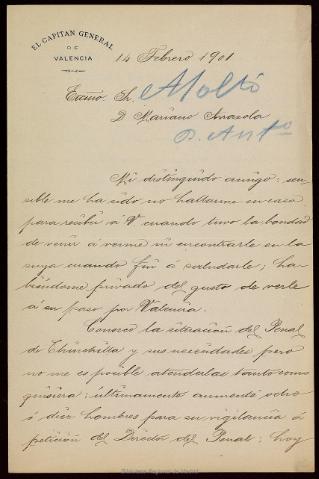 EL CAPITAN GENERAL
DE
VALENCIA
14 Febrero 1901
Excmo. Sr.
Moltó
D Mariano
D. Antº
Mi distinguido amigo: sen-
sible me ha sido no hallarme en casa
para recibir á V cuando tuvo la bondad
de venir á verme ni encontrarle en la
suya cuando fuí á saludarle; ha-
biéndome privado del gusto de verle
á su paso por Valencia.
Conozco la situación del Penal
de Chinchilla y sus necesidades pero
no me es posible atenderlas tanto como
quisiera: últimamente aumenté ocho
ó diez hombres para su vigilancia á
petición del Director del Penal: hoy